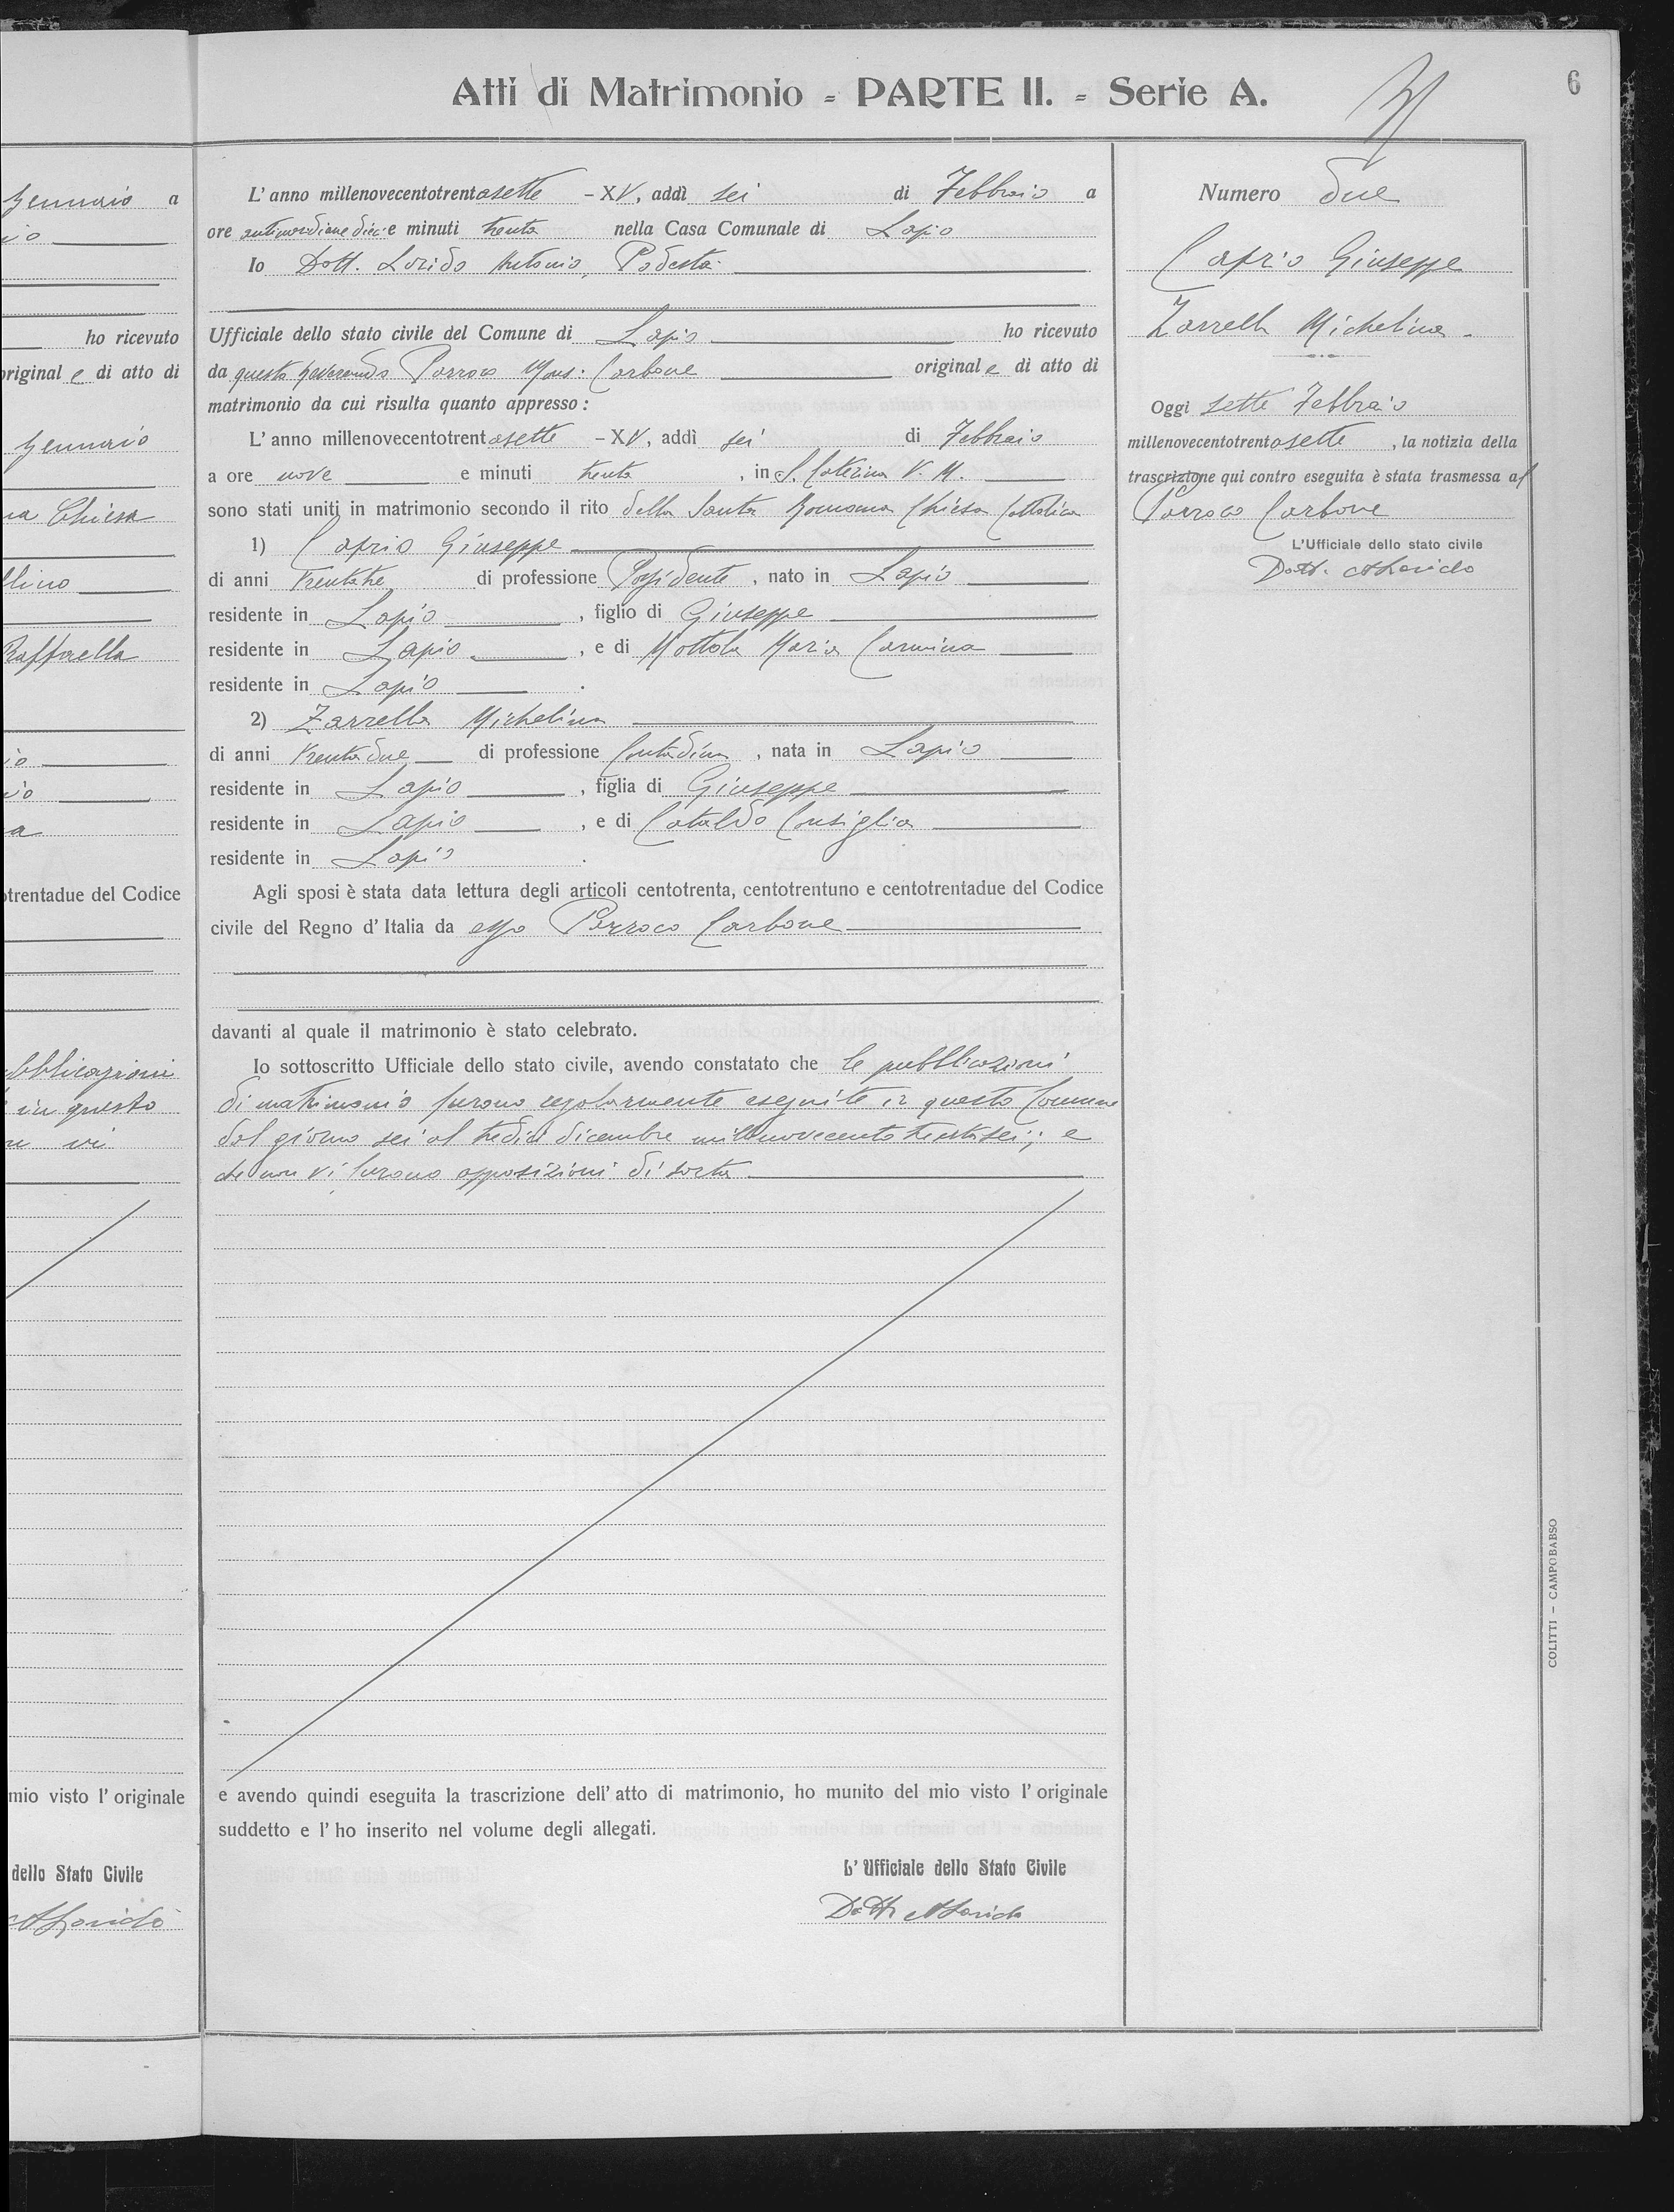 Atti di Matrimonio - PARTE II. - Serie A.
6
Gennaio a
ho ricevuto
original e di atto di
Gennaio
Chiesa
Raffaella
otrentadue del Codice
bblicazioni
in questo
vi
mio visto l' originale
dello Stato Civile
L' anno millenovecentotrentasette - XV, addì sei di Febbraio a
ore antimeridiane dieci e minuti trenta nella Casa Comunale di Lapio
Io Dott. Lorido Antonio, Podestà
Ufficiale dello stato civile del Comune di Lapio ho ricevuto
da questo Reverendo Parroco Mons. Carbone original e di atto di
matrimonio da cui risulta quanto appresso :
L' anno millenovecentotrentasette - XV, addì sei di Febbraio
a ore nove e minuti trenta , in S. Caterina V. M.
sono stati uniti in matrimonio secondo il rito della Santa Romana Chiesa Cattolica
1) Caprio Giuseppe
di anni trentatre di professione Possidente , nato in Lapio
residente in Lapio , figlio di Giuseppe
residente in Lapio , e di Mottola Maria Carmina
residente in Lapio .
2) Zarrella Michelina
di anni trentadue di professione Contadina , nata in Lapio
residente in Lapio , figlia di Giuseppe
residente in Lapio , e di Cataldo Consiglia
residente in Lapio .
Agli sposi è stata data lettura degli articoli centotrenta, centotrentuno e centotrentadue del Codice
civile del Regno d' Italia da esso Parroco Carbone
davanti al quale il matrimonio è stato celebrato.
Io sottoscritto Ufficiale dello stato civile, avendo constatato che le pubblicazioni
di matrimonio furono regolarmente eseguite in questo Comune
dal giorno sei al tredici dicembre millenovecentotrentasei; e
che non vi furono opposizioni di sorta
e avendo quindi eseguita la trascrizione dell' atto di matrimonio, ho munito del mio visto l' originale
suddetto e l' ho inserito nel volume degli allegati.
L' Ufficiale dello Stato Civile
Dott. A Lorido
Numero due
Caprio Giuseppe
Zarrella Michelina
Oggi sette Febbraio
millenovecentotrentasette , la notizia della
trascrizione qui contro eseguita è stata trasmessa al
Parroco Carbone
L'Ufficiale dello stato civile
Dott. A Lorido
COLITTI - CAMPOBABSO